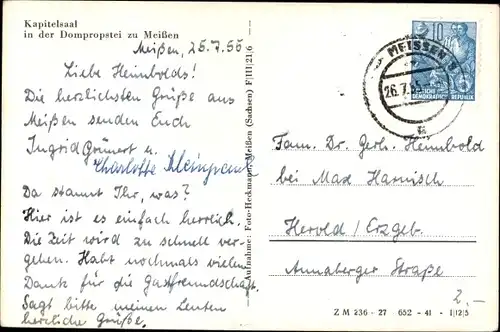 Kapitelsaal
in der Dompropstei zu Meißen
Meißen, 25.7.55
Liebe Heimbolds!
Die herzlichsten Grüße aus
Meißen senden Euch
Ingrid Grünert u.
Charlotte
Da staunt Ihr, was?
Hier ist es einfach herrlich.
Die Zeit wird zu schnell ver-
gehen. Habt nochmals vielen
Dank für die Gastfreundschaft.
Sagt bitte meinen Leuten
herzliche Grüße.
Aufnahme: Foto-Heckmann-Meißen (Sachsen) F/III/21,6
10
DEUTSCHE
DEMOKRATISCHE REPUBLIK
MEISSEN
26.7.55
Fam. Dr. Gerh. Heimbold
bei Max Harnisch
Herold / Erzgeb.
Annaberger Straße
2,-
Z M 236 - 27 652 - 41 - 1|12|5